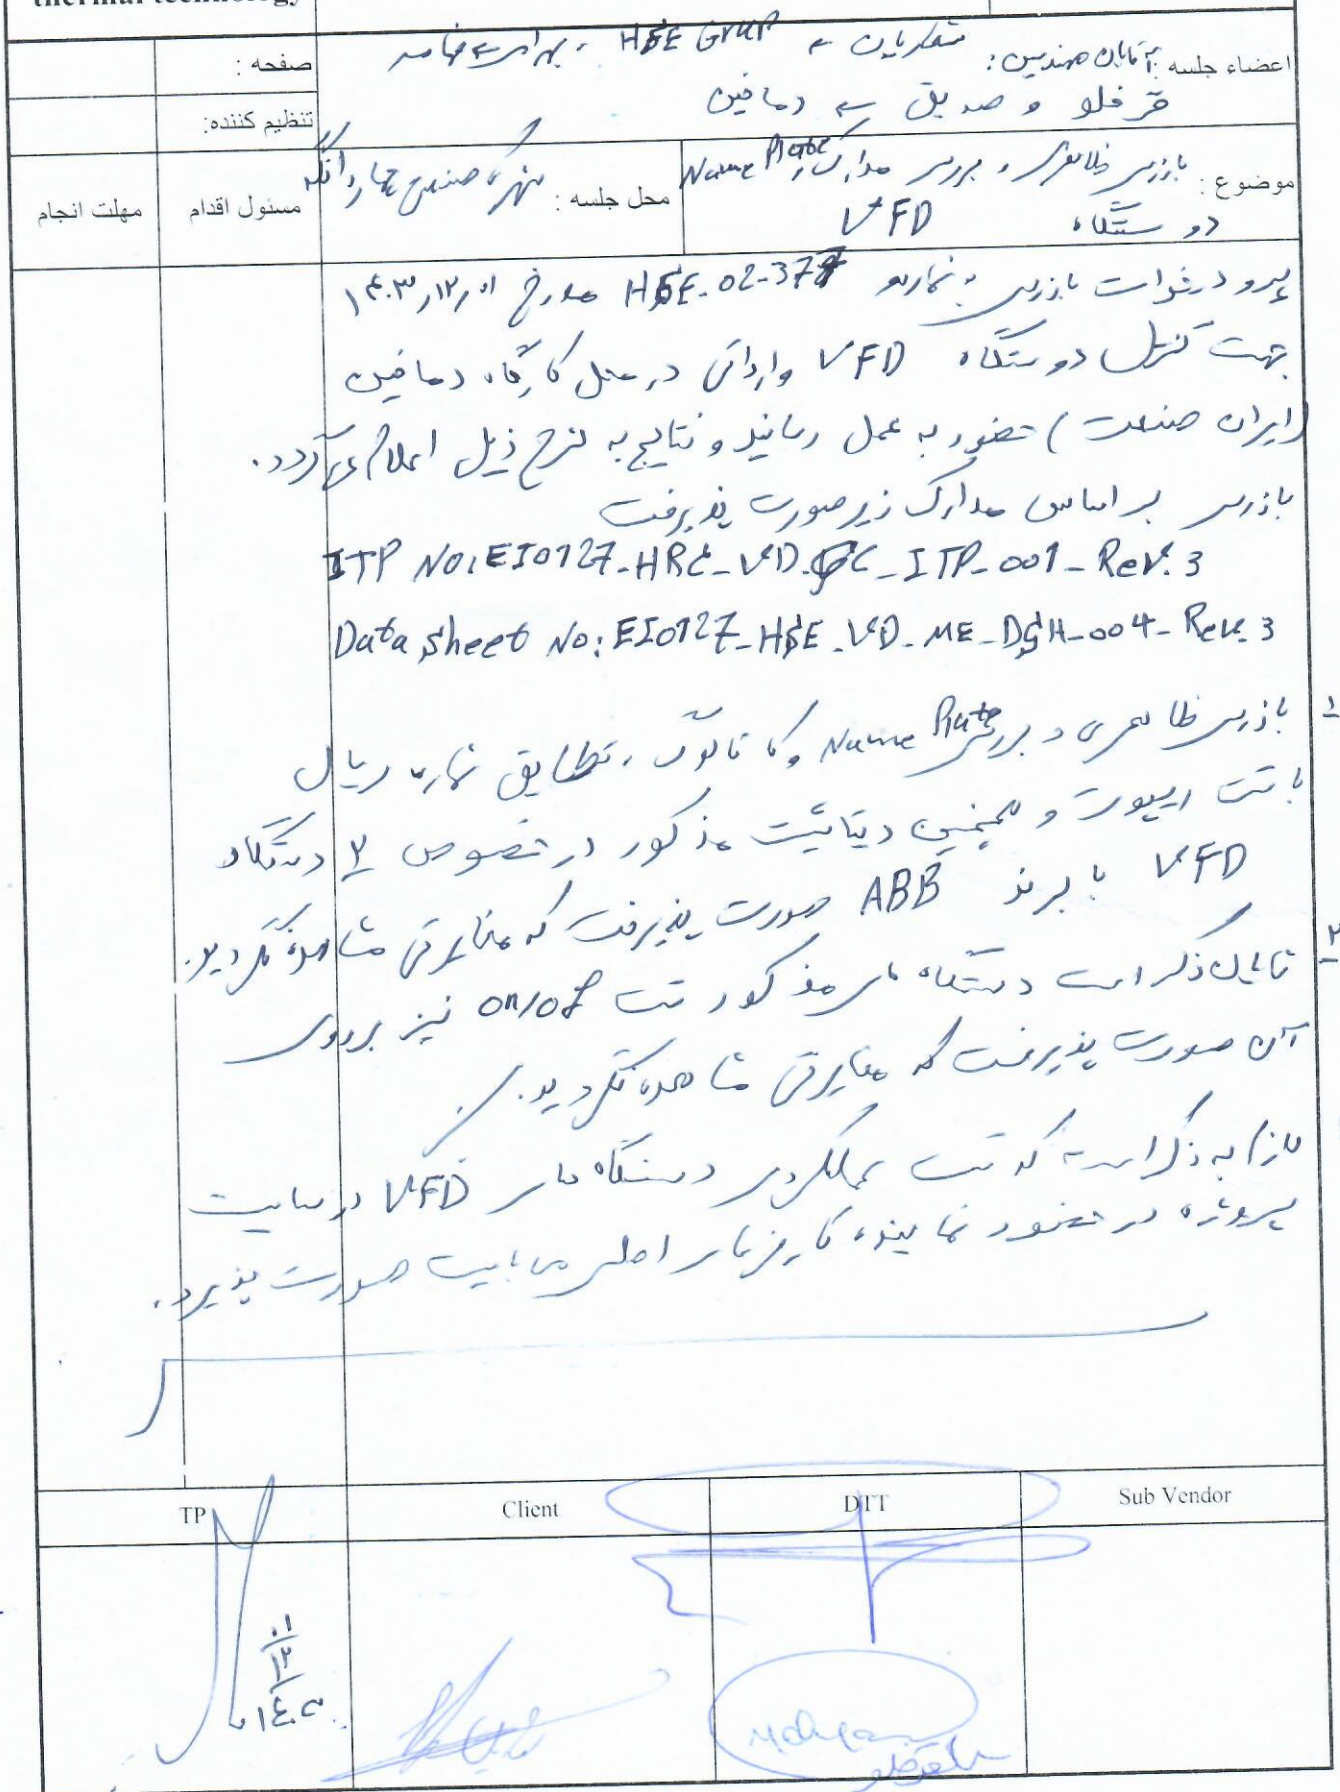 thermal technology
اعضاء جلسه : آقایان مهندسین : متقاریان ← HSE Group ،
قرقلو و صدیق ← دمافین
صفحه :
تنظیم کننده:
موضوع : بازرسی ظاهری و بررسی مدارک و Name Plate
دو دستگاه VFD
محل جلسه : شهرک صنعتی چهاردانگه
مسئول اقدام
مهلت انجام
پیرو درخواست بازرسی به شماره HSE-02-377 مورخ ۱۴۰۳/۱۲/۰۱
جهت کنترل دو دستگاه VFD وارداتی در محل کارگاه دمافین
(ایران صنعت) حضور به عمل رسانید و نتایج به شرح ذیل اعلام می‌گردد.
بازرسی بر اساس مدارک زیر صورت پذیرفت
ITP No: EI0127-HRE-VD-QC-ITP-001-Rev.3
Data sheet No: EI0127-HSE-VD-ME-DSH-004-Rev.3
۱ بازرسی ظاهری و بررسی Name Plate و کاتالوگ ، تطابق شماره سریال
با تست ریپورت و همچنین دیتاشیت مذکور در خصوص ۲ دستگاه
VFD با برند ABB صورت پذیرفت که مغایرتی مشاهده نگردید.
۲ قابل ذکر است دستگاه های مذکور تست on/off نیز بر روی
آن صورت پذیرفت که مغایرتی مشاهده نگردید.
لازم به ذکر است که تست عملکردی دستگاه های VFD در سایت
پروژه در حضور نماینده کارفرمای اصلی می بایست صورت پذیرد.
TP
Client
DTT
Sub Vendor
۱۴۰۳/۱۲/۰۱